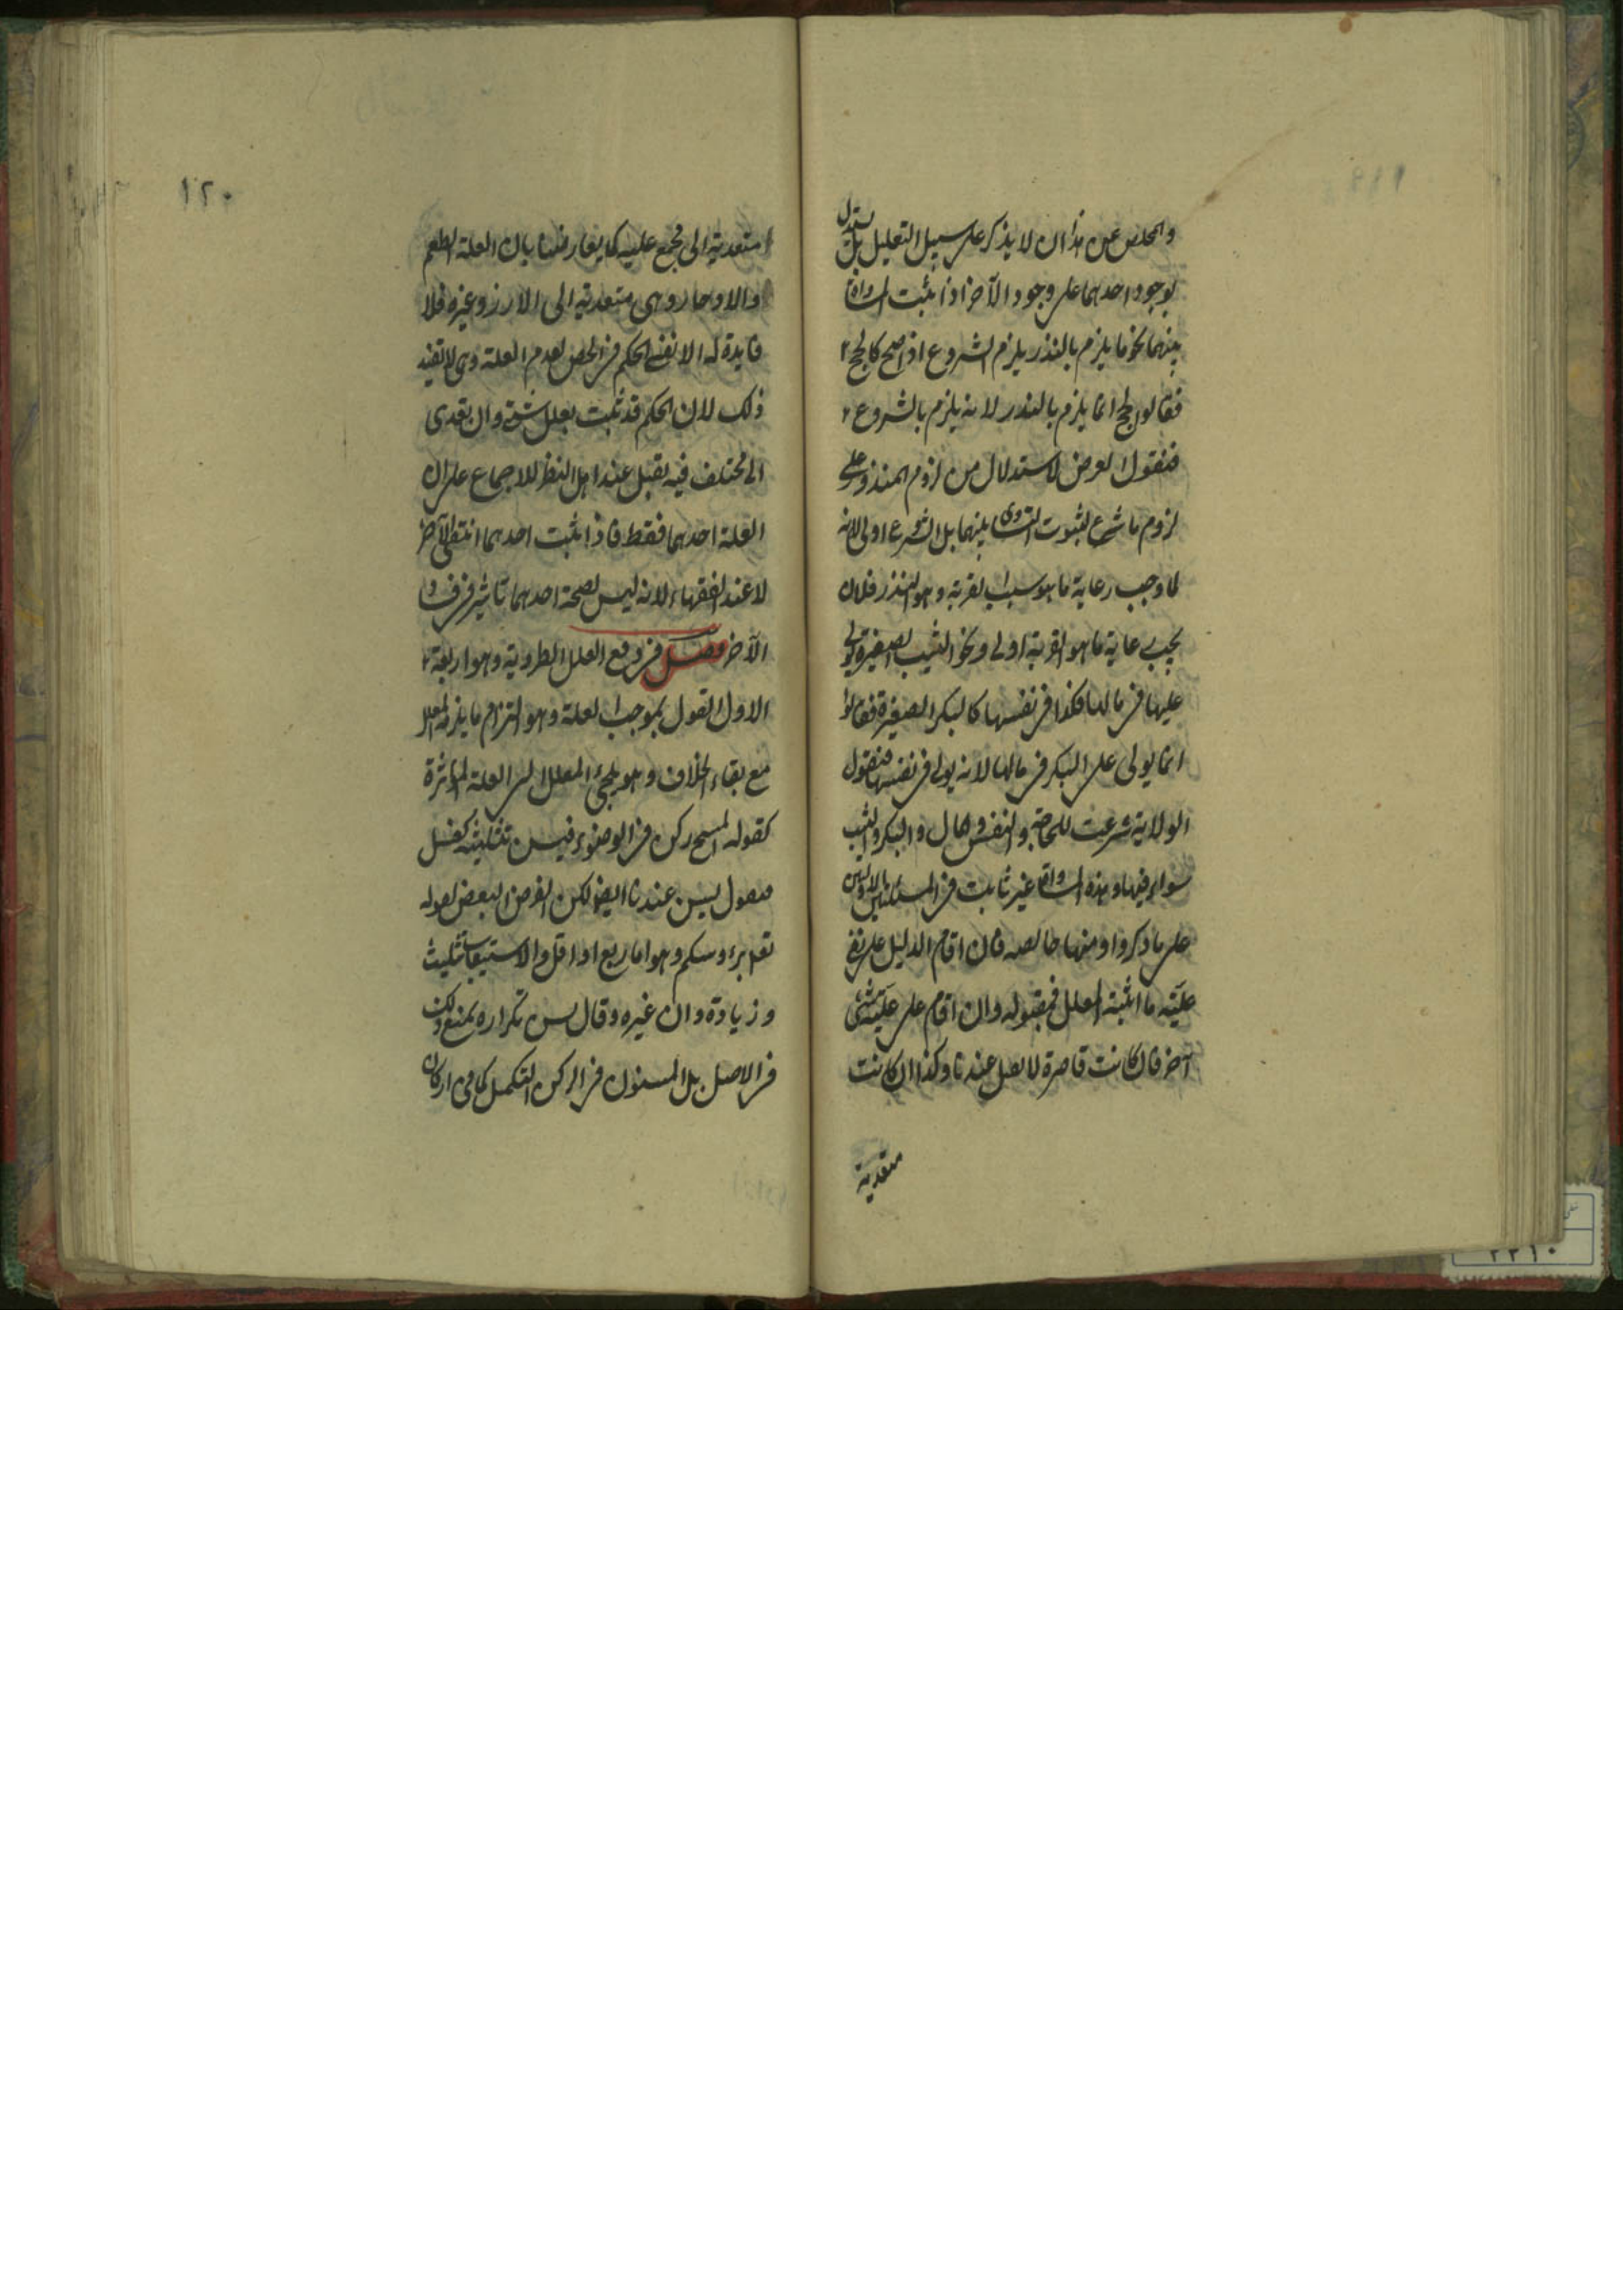 والمخلص عن هذا ان لا يذكر على سبيل التعليل بل يستدل
بوجود احدهما على وجود الآخر اذا ثبت المساواة
بينهما نحو ما يلزم بالنذر يلزم بالشروع اذا صح كالحج
فقالوا الحج انما يلزم بالنذر لانه يلزم بالشروع
فنقول الغرض الاستدلال من لزوم المنذور على
لزوم ما شرع لثبوت التساوى بينهما بل الشروع اولى لانه
لما وجب رعاية ما هو سبب القربة وهو النذر فلان
يجب رعاية ما هو القربة اولى ونحو الثيب الصغيرة يولى
عليها فى مالها فكذا فى نفسها كالبكر الصغيرة فقالوا
انما يولى على البكر فى مالها لانه يولى فى نفسها فنقول
الولاية شرعت للحاجة والنفس والمال والبكر والثيب
سواء فيها وهذه المساواة غير ثابتة فى المسئلتين الاوليين
على ما ذكروا ومنها خالصه فان اقام الدليل على نفى
علية ما اثبته المعلل فمقبوله وان اقام على علية شئ
آخر فان كانت قاصرة لا يقبل عندنا وكذا ان كانت
متعدية
١٢٠
متعدية الى مجمع عليه كما يعارضنا بان العلة الطعم
والادخار وهى متعدية الى الارز وغيره فلا
فايدة له الا نفى الحكم فى الجص لعدم العلة وهى لا تفيد
ذلك لان الحكم قد ثبت بعلل شتى وان تعدى
الى مختلف فيه يقبل عند اهل النظر للاجماع على ان
العلة احدهما فقط فاذا ثبت احدهما انتفى الآخر
لا عند الفقهاء لانه ليس لصحة احدهما تاثير فى فساد
الآخر فصل فى دفع العلل الطردية وهو اربعة
الاول القول بموجب العلة وهو التزام ما يلزمه المعلل
مع بقاء الخلاف وهو يلجئ المعلل الى العلة المؤثرة
كقوله المسح ركن فى الوضوء فيسن تثليثه كغسل
فنقول يسن عندنا ايضا لكن الفرض البعض لقوله
تعالى برءوسكم وهو اما ربع او اقل والاستيعاب تثليث
وزيادة وان غيره وقال يسن تكراره يمنع ذلك
فى الاصل بل المسنون فى الركن التكميل كما فى اركان